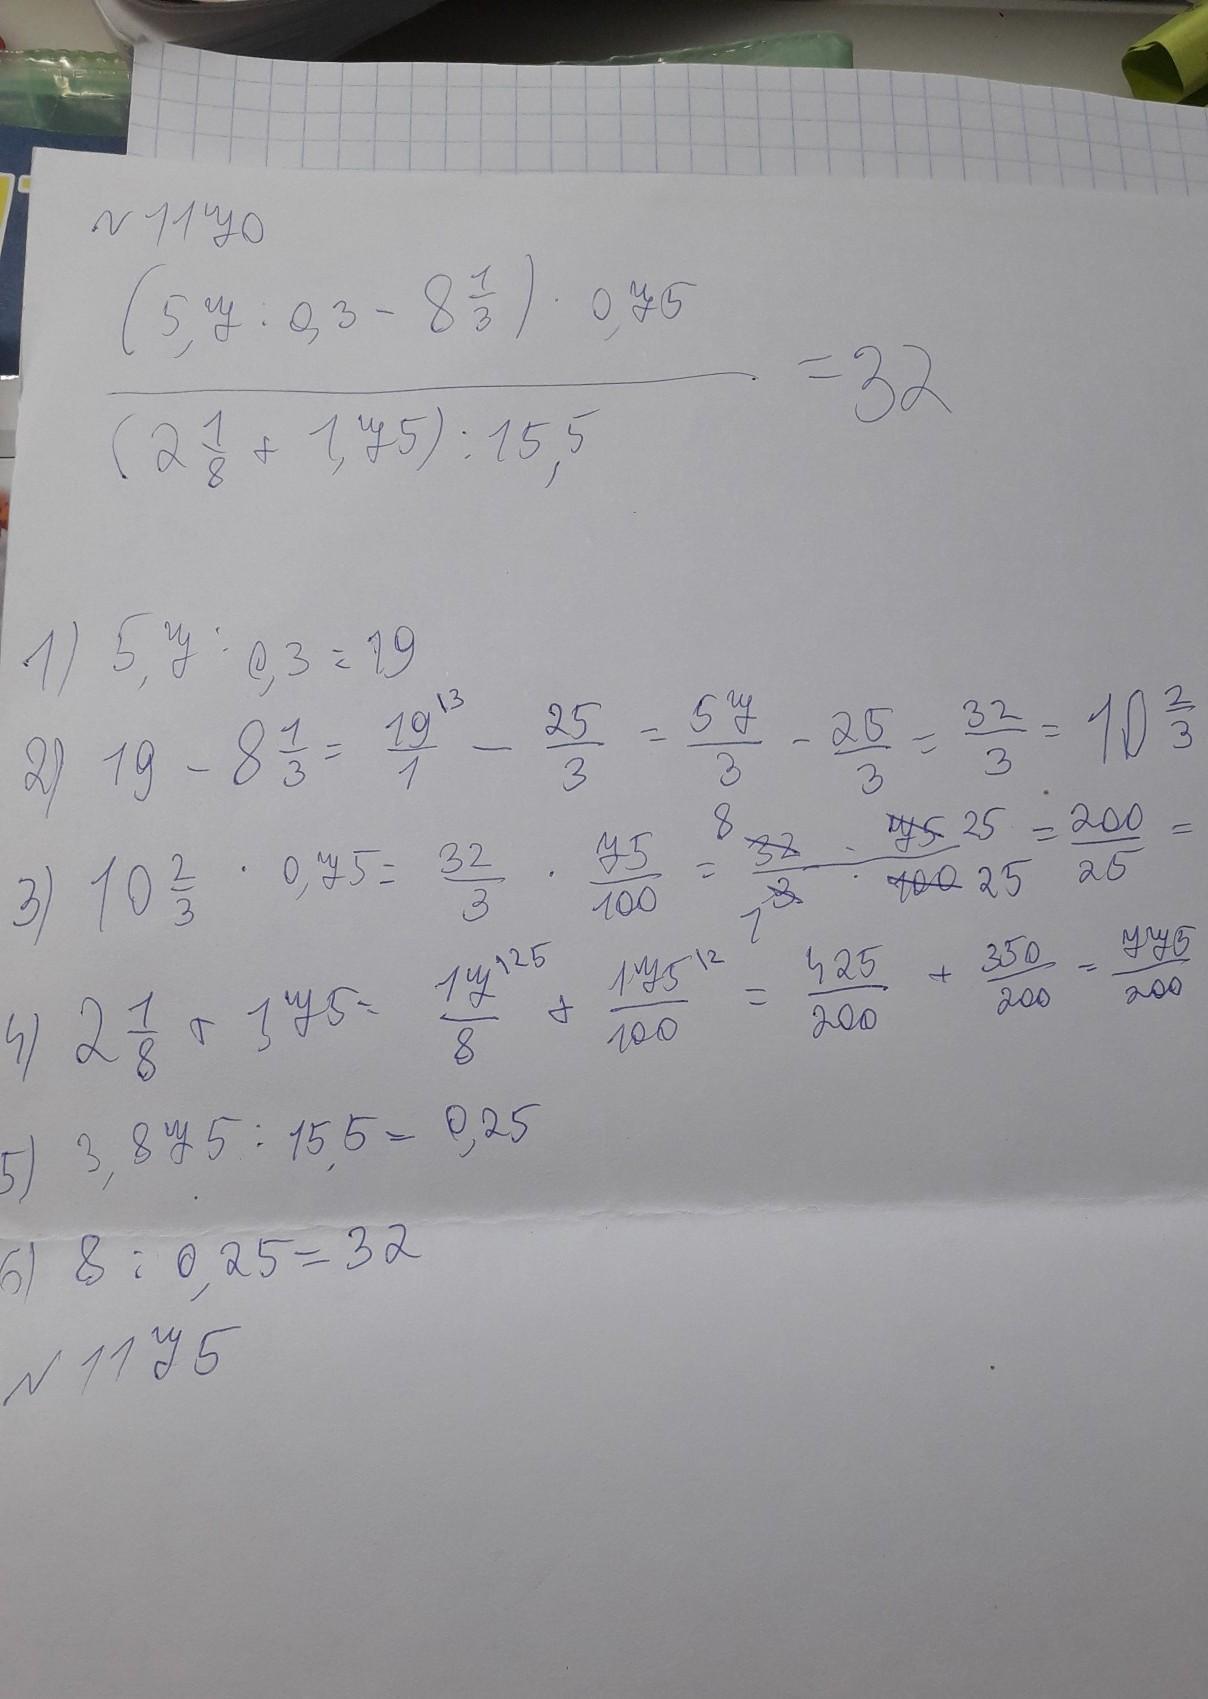 №1170
(5,7 : 0,3 - 8 1/3) · 0,75
(2 1/8 + 1,75) : 15,5
= 32
1) 5,7 : 0,3 = 19
2) 19 - 8 1/3 = 19\3/1 - 25/3 = 57/3 - 25/3 = 32/3 = 10 2/3
3) 10 2/3 · 0,75 = 32/3 · 75/100 = 8 32 · 75 25 / 1 3 · 100 25 = 200/25 =
4) 2 1/8 + 1,75 = 17\25/8 + 175\2/100 = 425/200 + 350/200 = 775/200
5) 3,875 : 15,5 = 0,25
6) 8 : 0,25 = 32
№1175